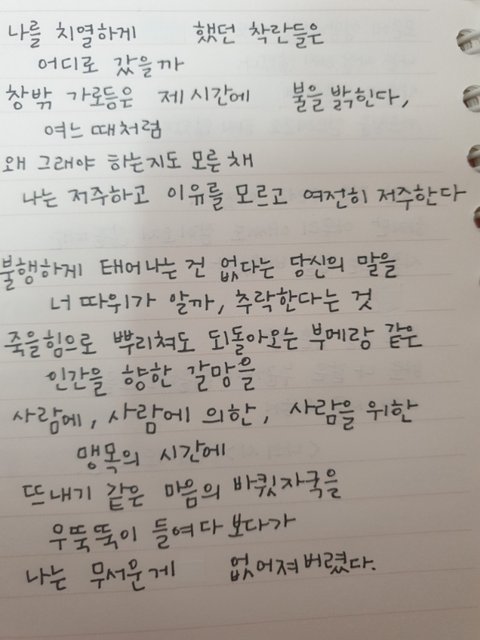 나를 치열하게 했던 착란들은
어디로 갔을까
창밖 가로등은 제시간에 불을 밝힌다,
여느 때처럼
왜 그래야 하는지도 모른 채
나는 저주하고 이유를 모르고 여전히 저주한다
불행하게 태어나는 건 없다는 당신의 말을
너 따위가 알까, 추락한다는 것
죽을힘으로 뿌리쳐도 되돌아오는 부메랑 같은
인간을 향한 갈망을
사람에, 사람에 의한, 사람을 위한
맹목의 시간에
뜨내기 같은 마음의 바큇자국을
우뚝뚝이 들여다보다가
나는 무서운게 없어져버렸다.